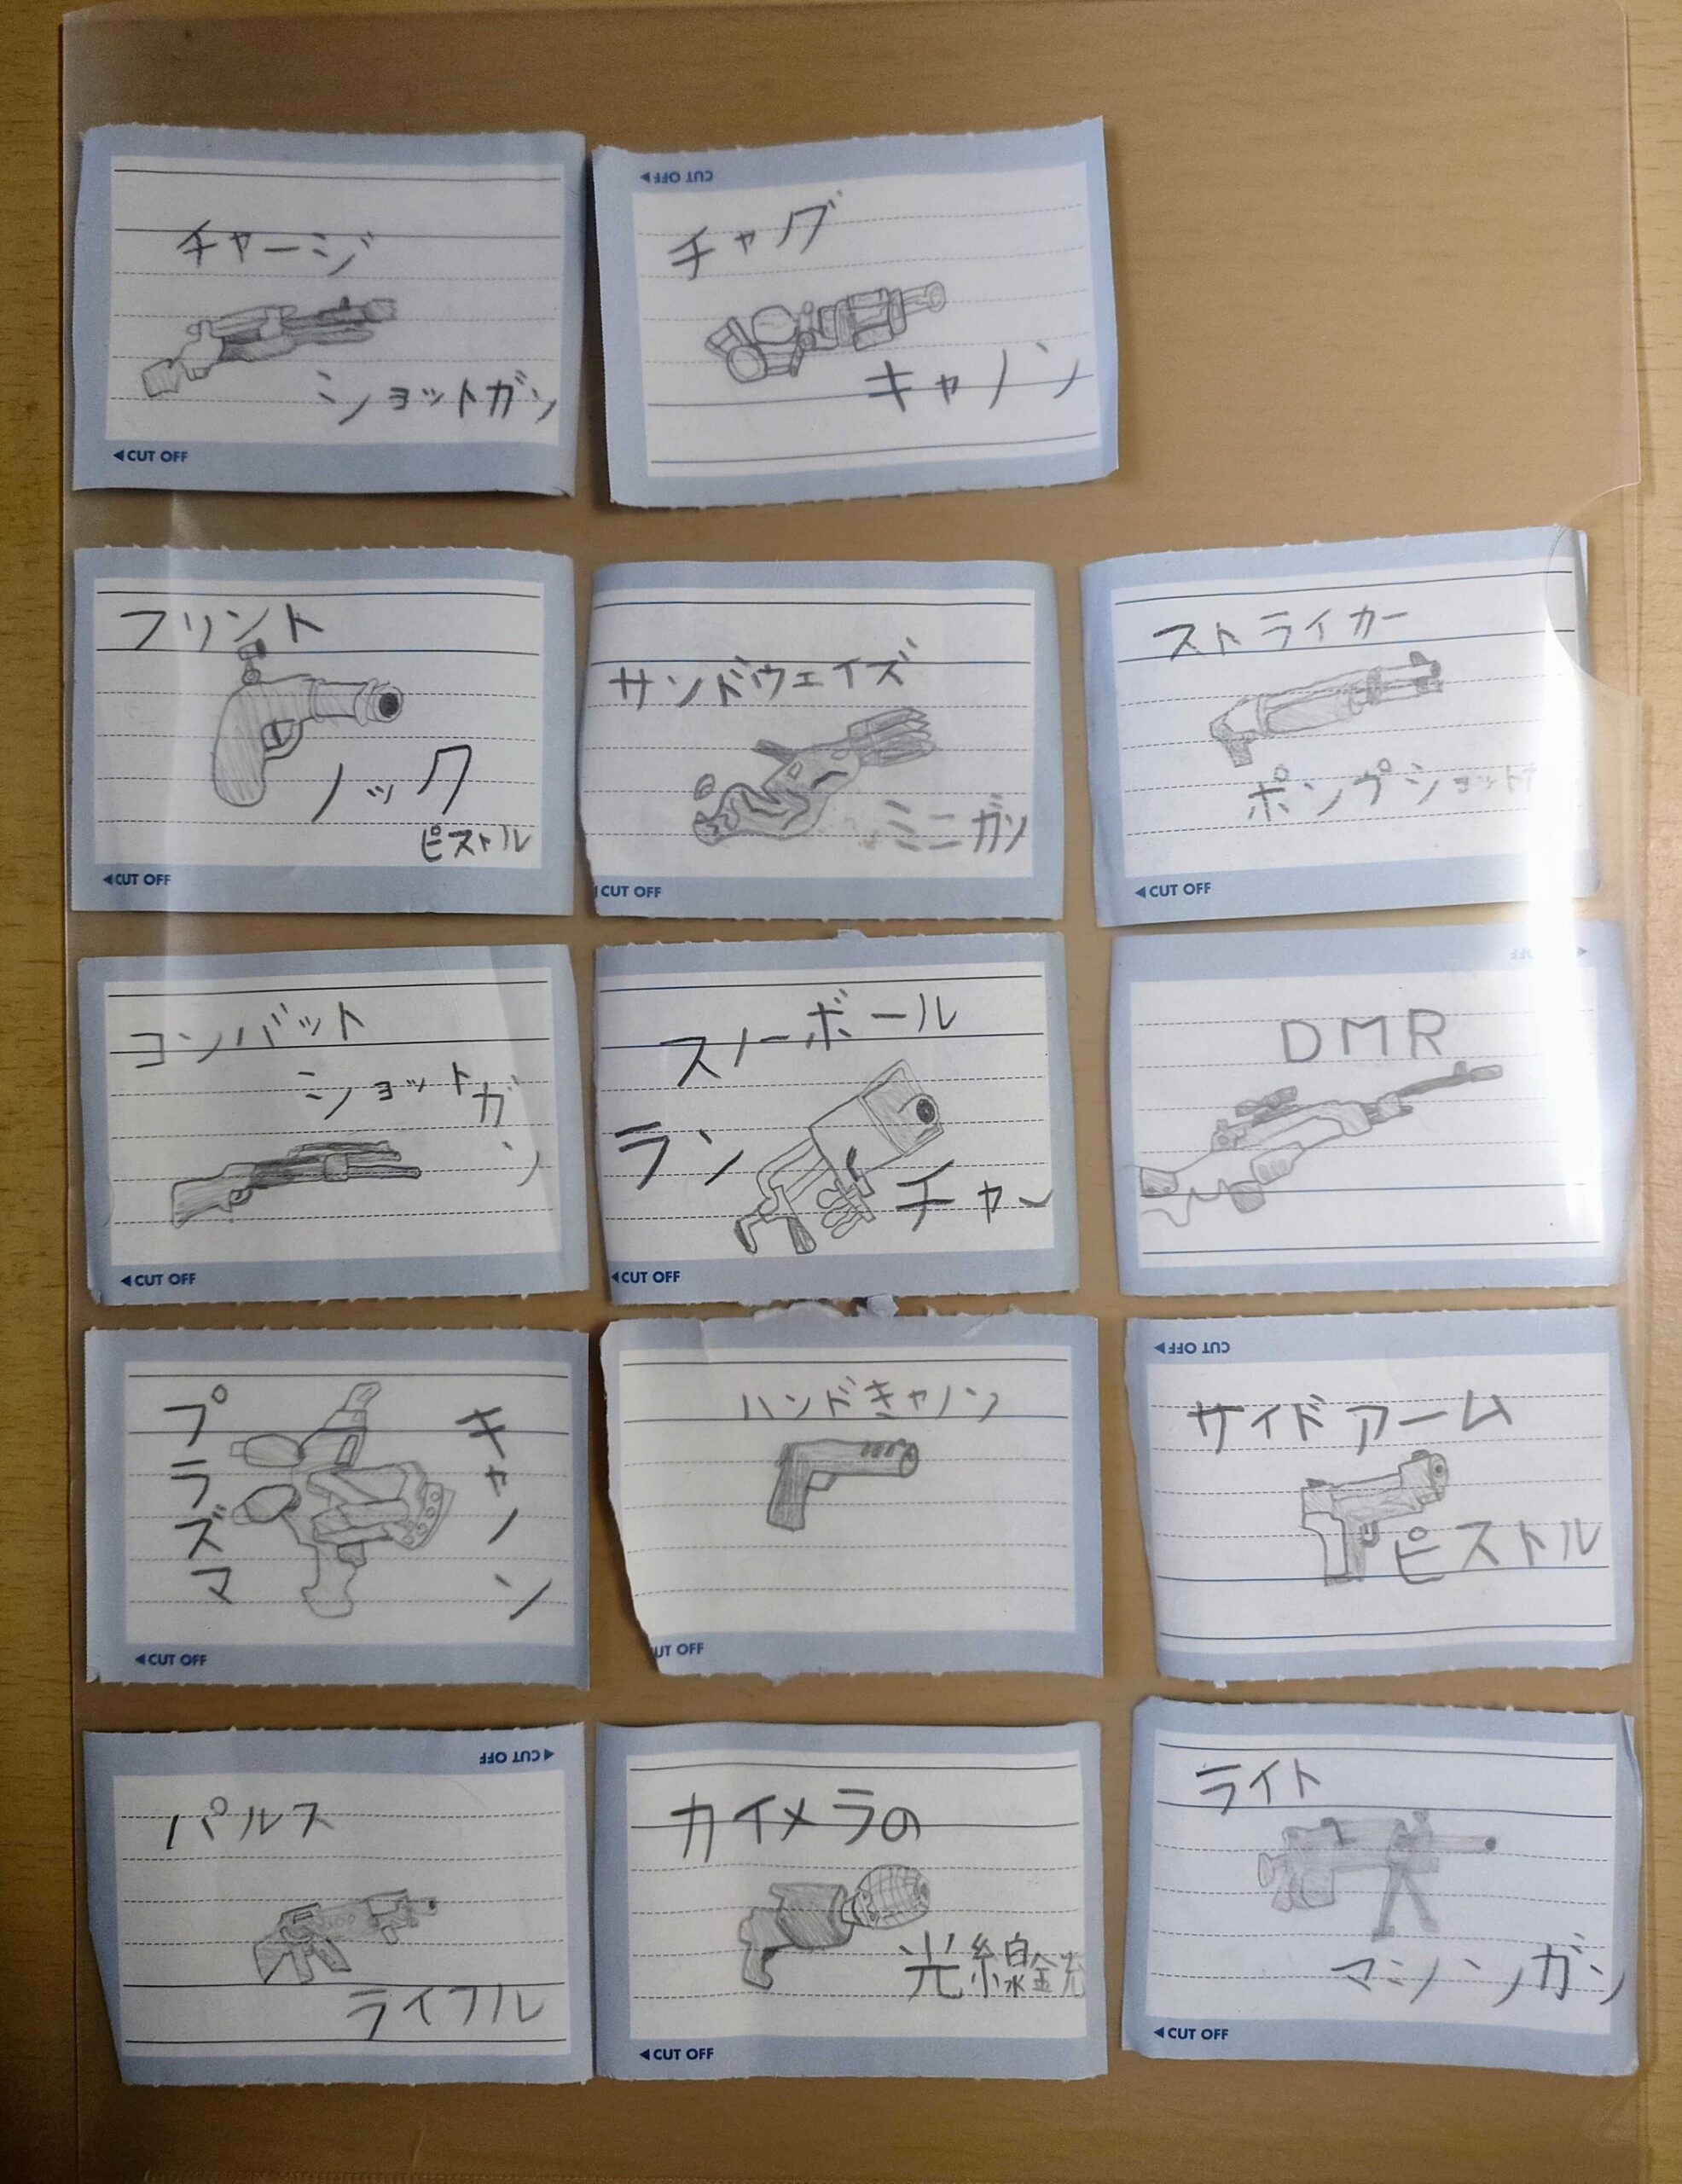 チャージ
ショットガン
◀CUT OFF
CUT OFF
チャグ
キャノン
フリント
ノック
ピストル
◀CUT OFF
サンドウェイズ
ミニガン
CUT OFF
ストライカー
ポンプショット
◀CUT OFF
コンバット
ショットガ
ン
◀CUT OFF
スノーボール
ラン
チャー
◀CUT OFF
DMR
プラズマ
キャノン
◀CUT OFF
ハンドキャノン
UT OFF
CUT OFF
サイドアーム
ピストル
CUT OFF
パルス
ライフル
カイメラの
光線銃
◀CUT OFF
ライト
マシンガン
◀CUT OFF